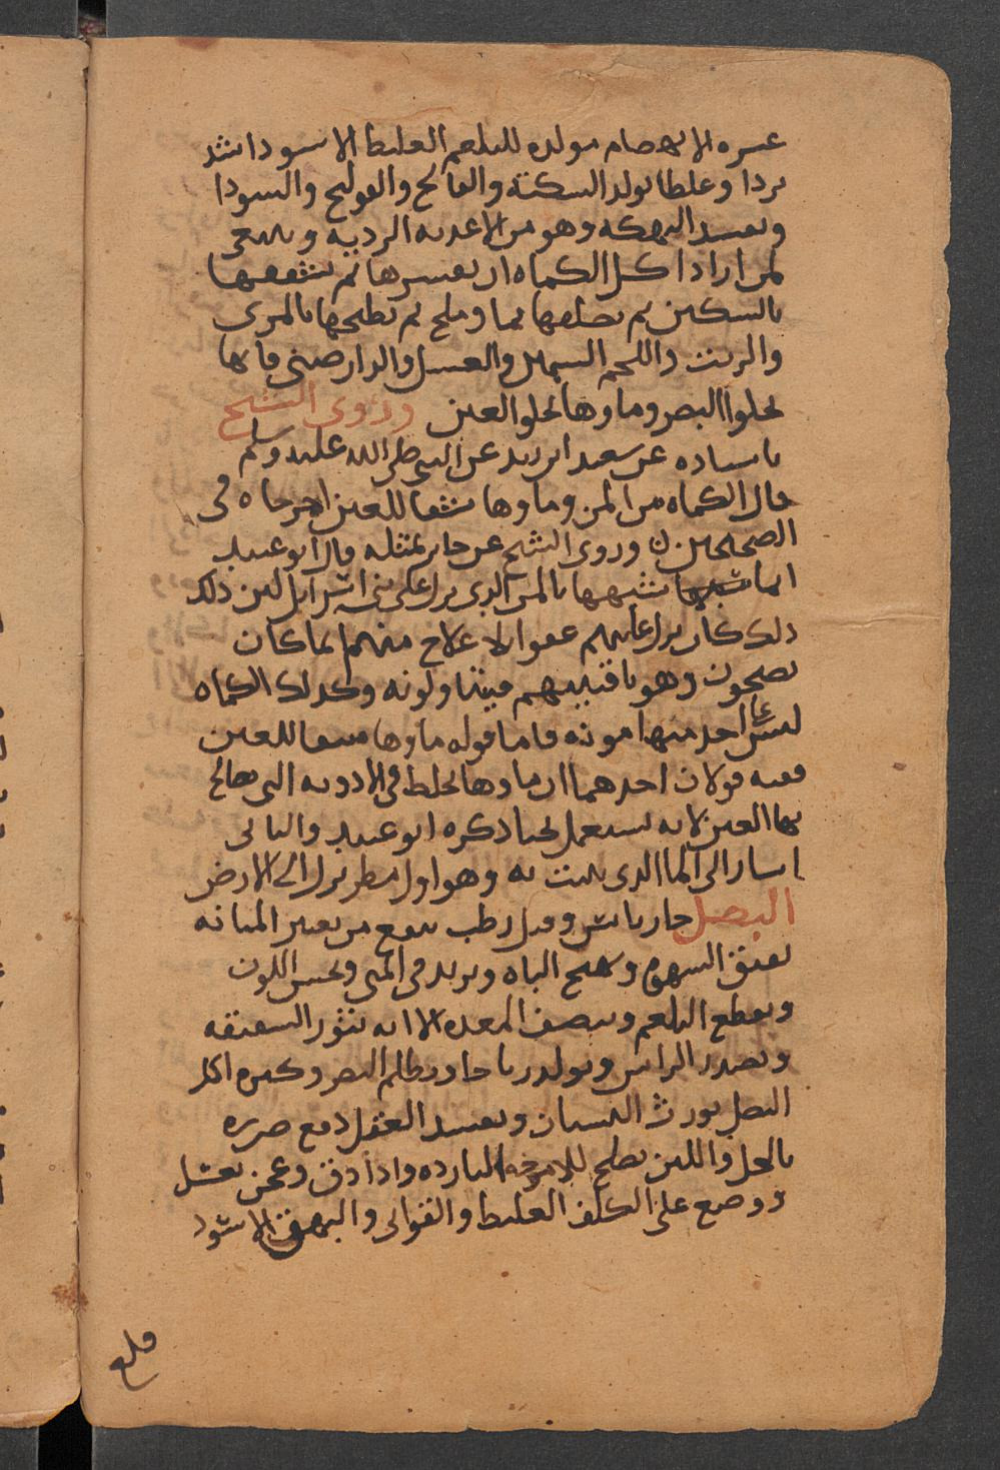 عسره الانهضام مولده للبلغم الغليظ الاسود اشد
بردا وغلظا تولد السكتة والفالج والقولنج والسودا
وتفسد النهكه وهو من الاغذيه الرديه وينبغي
لمن اراد اكل الكماه ان يقسرها ثم يشققها
بالسكين ثم يصلقها بما وملح ثم يطبخها بالمرى
والزيت واللحم السمين والعسل والدارصيني فانها
تجلوا البصر وماوها يجلوا العين وروى الشيخ
باسناده عن سعيد ابن زيد عن النبي صلى الله عليه وسلم
قال الكماه من المن وماوها شفا للعين اخرجاه في
الصحيحين وروى الشيخ عن جابر بمثله قال ابو عبيد
انما شبهها بالمن الذي نزل على بني اسرآيل لان ذلك
ذلك كان ينزل عليهم عفوا لا علاج منهم انما كان
يصبحون وهو بافنيتهم فيتناولونه وكذلك الكماه
ليس على احد منها مونه فاما قوله ماوها شفا للعين
ففيه قولان احدهما ان ماوها يخلط في الادويه التي يعالج
بها العين لانه يستعمل بحتا ذكره ابو عبيد والثاني
اشار الى الما الذي ينبت به وهو اول مطر نزل الى الارض
البصل حار يابس وقيل رطب ينفع من تغير المياه
يفتق الشهوه ويهيج الباه ويزيد في المنى ويحسن اللون
ويقطع البلغم وينضف المعده الا انه يثور الشقيقه
ويصدر الراس ويولد رياحا ويظلم البصر وكثره اكل
البصل يورث النسيان ويفسد العقل دفع ضرره
بالخل واللبن يصلح للامزجه البارده واذا دق وعجن بعسل
ووضع على الكلف الغليظ والقوابي والبهق الاسود
قلع